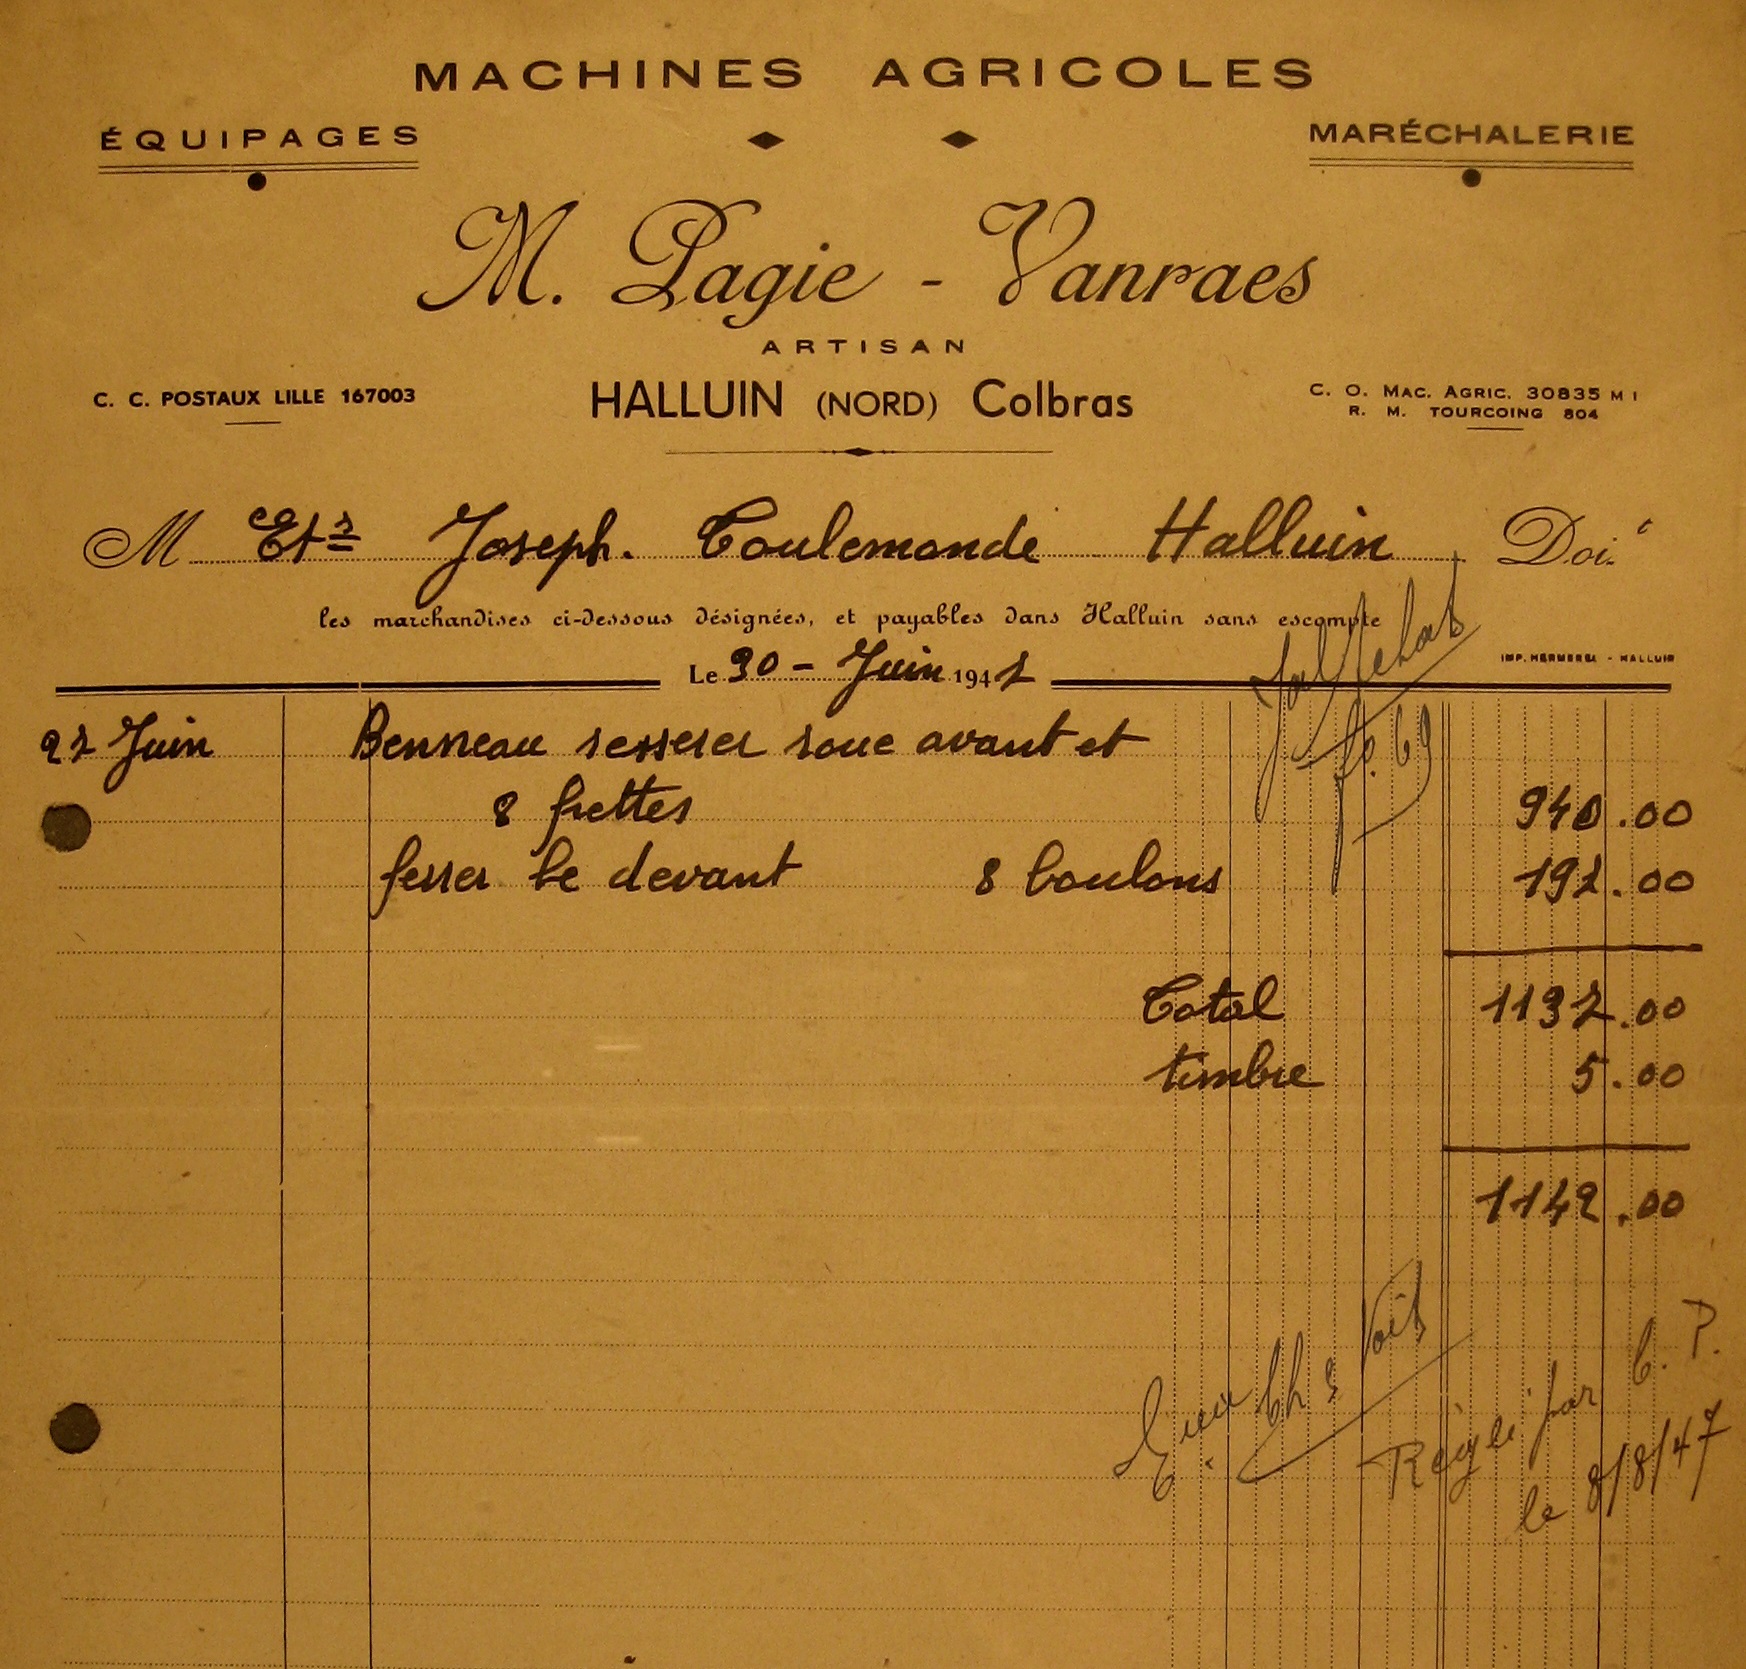 MACHINES AGRICOLES
ÉQUIPAGES
MARÉCHALERIE
M. Pagie - Vanraes
ARTISAN
C. C. POSTAUX LILLE 167003
HALLUIN (NORD) Colbras
C. O. MAC. AGRIC. 30835 M I
R. M. TOURCOING 804
M Ets Joseph. Toulemonde Halluin Doit
les marchandises ci-dessous désignées, et payables dans Halluin sans escompte
Jal Achat
fo. 69
Le 30 - Juin 1947
IMP. - HALLUIN
27 Juin Benneau resserer roue avant et
8 frettes 940.00
ferrer le devant 8 boulons 197.00
Total 1137.00
timbre 5.00
1142.00
Voit
Réglé par C. P.
le 8/8/47